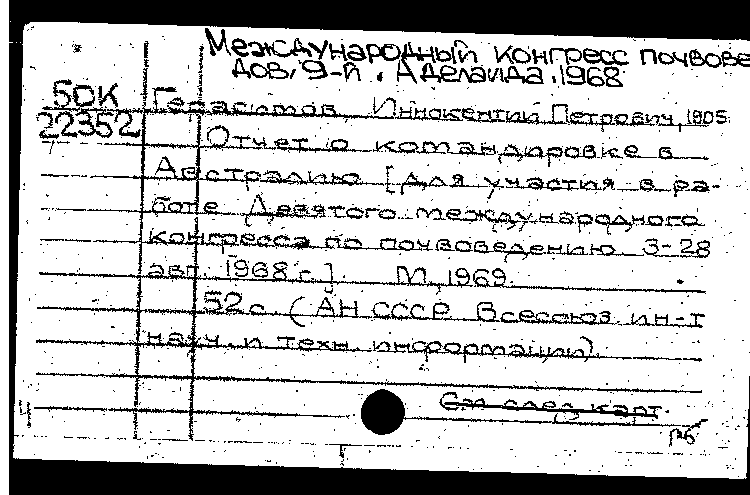 Международный конгресс почвове
дов, 9-й. Аделаида. 1968
БОК
22352
Герасимов, Иннокентий Петрович, 1905.
Отчет о командировке в
Австралию [для участия в ра-
боте Девятого международного
конгресса по почвоведению 3-28
авг. 1968 г.]. М., 1969.
52 с. (АН СССР. Всесоюз. ин-т
науч. и техн. информации).
См. след. карт.